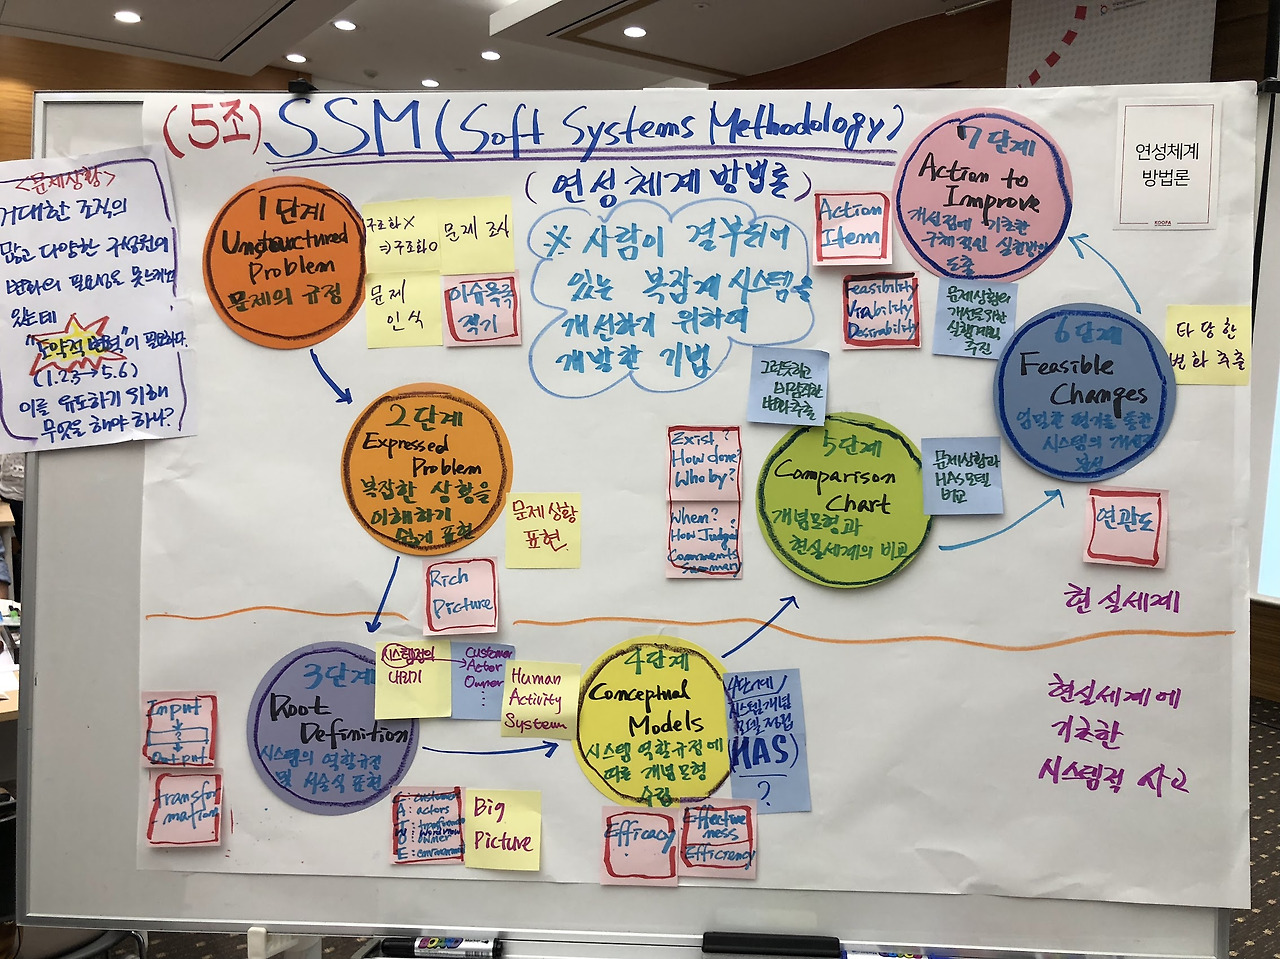 (5조) SSM (Soft Systems Methodology)
(연성체계 방법론)
연성체계
방법론
KOOFA
<문제상황>
거대한 조직의
많고 다양한 구성원이
변화의 필요성을 못느끼고
있는데
"도약적 변혁"이 필요하다.
(1.23→5.6)
이를 유도하기 위해
무엇을 해야 하나?
※ 사람이 결부되어
있는 복잡계 시스템을
개선하기 위하여
개발한 기법
1단계
Unstructured
Problem
문제의 규정
구조화X
⇒구조화O
문제 조식
문제
인식
이슈목록
적기
2단계
Expressed
Problem
복잡한 상황을
이해하기
쉽게 표현
문제상황
표현
Rich
Picture
3단계
Root
Definition
시스템의 역할규정
및 서술식 표현
시스템정의
내리기
Customer
Actor
Owner
Human
Activity
System
Input
?
Output
Transfor
mation
C: customer
A: actors
T: transformation
W: worldview
O: owner
E: environment
Big
Picture
4단계
Conceptual
Models
시스템 역할규정에
따른 개념모형
수립
4단계/
시스템개념
모델정립
(HAS)
?
Efficacy
Effective
ness
Efficiency
5단계
Comparison
Chart
개념모형과
현실세계의 비교
그럴듯하고
바람직한
변화추출
Exist?
How done?
Who by?
When?
How Judge?
Comments
Summary
문제상황과
HAS모델
비교
6단계
Feasible
Changes
엄밀한 평가를 통한
시스템의 개선점
타당한
변화 추출
연관도
7단계
Action to
Improve
개선점에 기초한
구체적인 실천방안
도출
Action
Item
Feasibility
Viability
Desirability
문제상황의
개선을 위한
실행계획
추진
현실세계
현실세계에
기초한
시스템적 사고